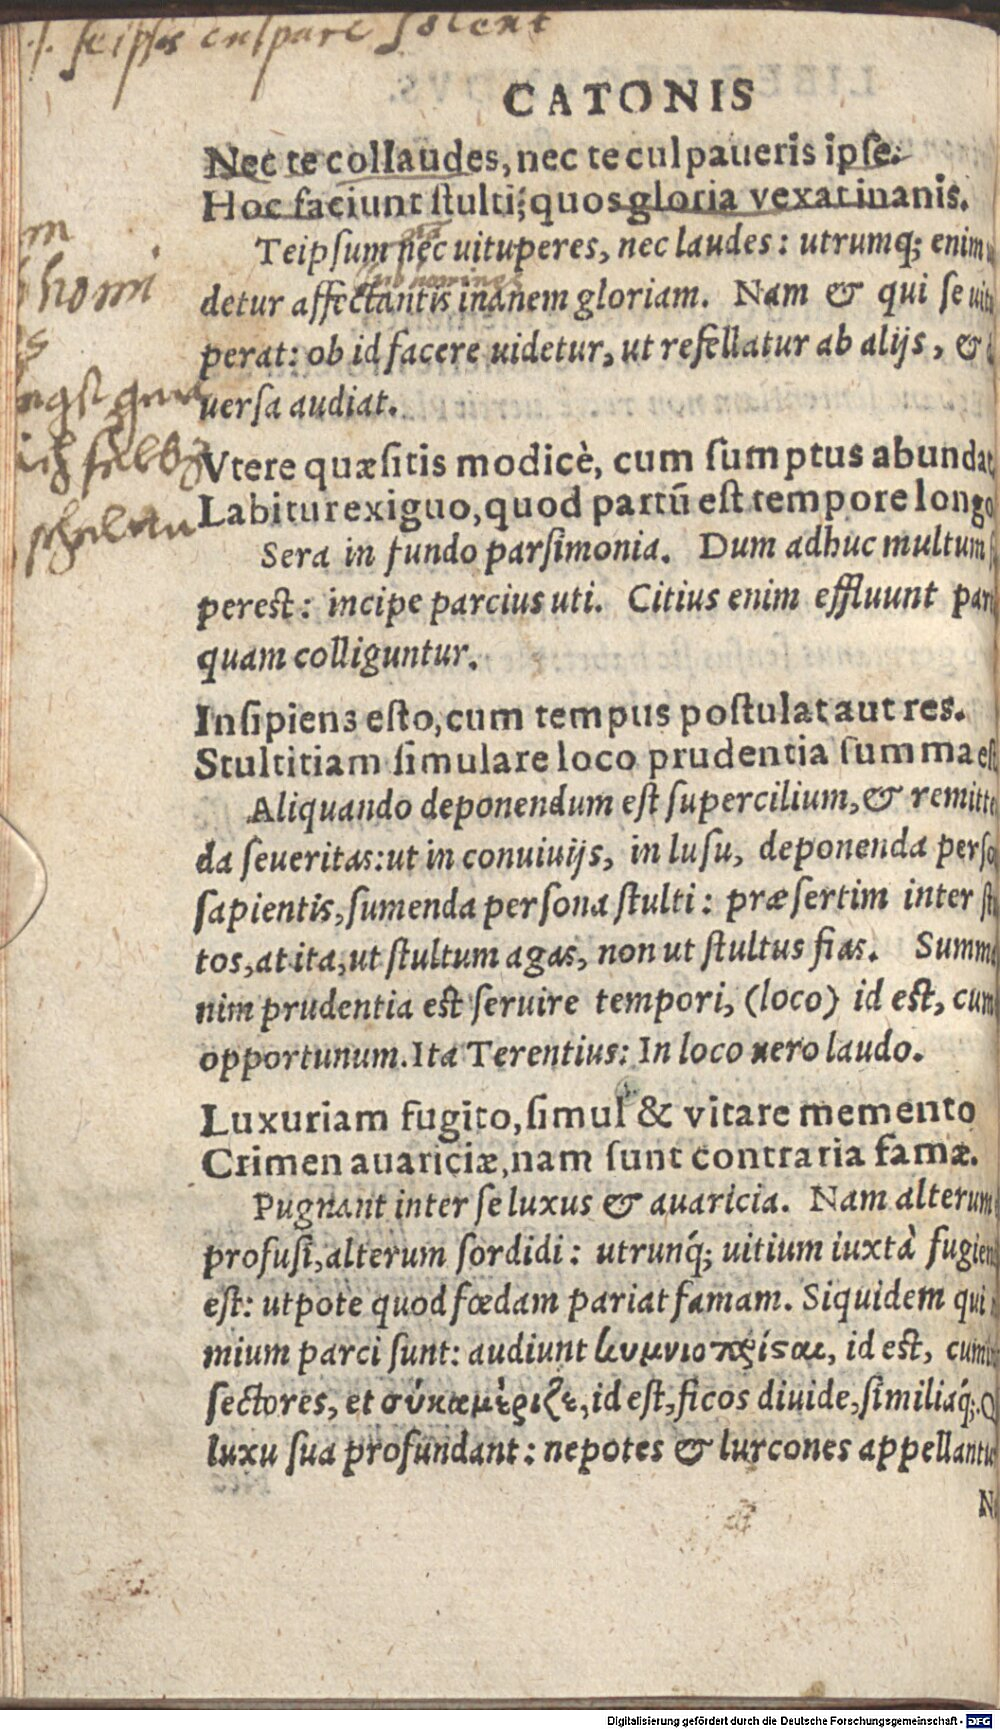 .j. seipsos culpare solent
CATONIS
Nec te collaudes, nec te culpaueris ipse.
Hoc faciunt ſtulti, quos gloria vexat inanis.
Teipſum nec uituperes, nec laudes: utrumq; enim
detur affectantis inanem gloriam. Nam & qui ſe uitu
perat: ob id facere uidetur, ut refellatur ab alijs, &
uerſa audiat.
homi
Vtere quæſitis modicè, cum ſumptus abundat
Labitur exiguo, quod partū eſt tempore longo
Sera in fundo parſimonia. Dum adhuc multum ſ
pereſt: incipe parcius uti. Citius enim effluunt par
quam colliguntur.
Inſipiens eſto, cum tempus poſtulat aut res.
Stultitiam ſimulare loco prudentia ſumma eſt
Aliquando deponendum eſt ſupercilium, & remitte
da ſeueritas: ut in conuiuijs, in luſu, deponenda perſo
ſapientis, ſumenda perſona ſtulti: præſertim inter ſtu
tos, at ita, ut ſtultum agas, non ut ſtultus fias. Summa
nim prudentia eſt ſeruire tempori, (loco) id eſt, cum
opportunum. Ita Terentius: In loco uero laudo.
Luxuriam fugito, ſimul & vitare memento
Crimen auariciæ, nam ſunt contraria famæ.
Pugnant inter ſe luxus & auaricia. Nam alterum
profuſi, alterum ſordidi: utrunq́; uitium iuxtà fugien
eſt: utpote quod fœdam pariat famam. Siquidem qui
mium parci ſunt: audiunt κυμνιοπρίσαι, id eſt, cumi
ſectores, et σύκαμὲριζε, id eſt, ficos diuide, ſimiliaq́;. Q
luxu ſua profundant: nepotes & lurcones appellantur
N
Digitalisierung gefördert durch die Deutsche Forschungsgemeinschaft - DFG